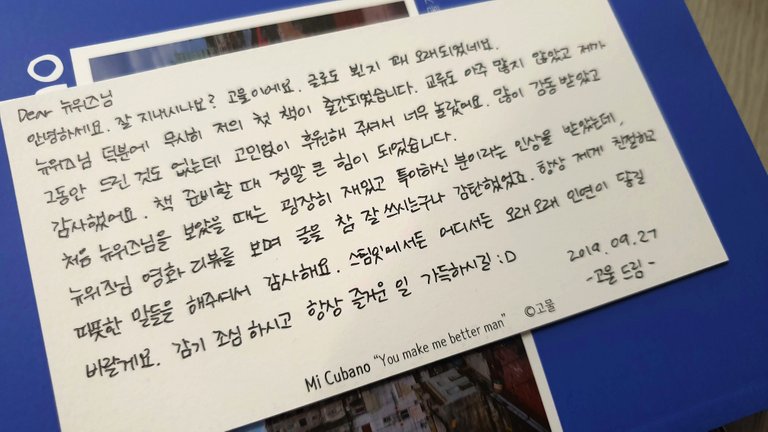 Dear 뉴위즈님
안녕하세요. 잘 지내시나요? 고물이에요. 글로도 뵌지 꽤 오래되었네요.
뉴위즈님 덕분에 무사히 저의 첫 책이 출간되었습니다. 교류도 아주 많지 않았고 제가
그동안 드린 것도 없는데 고민없이 후원해 주셔서 너무 놀랐어요. 많이 감동 받았고
감사했어요. 책 준비할 때 정말 큰 힘이 되었습니다.
처음 뉴위즈님을 보았을 때는 굉장히 재밌고 특이하신 분이라는 인상을 받았는데,
뉴위즈님 영화 리뷰를 보며 글을 참 잘 쓰시는구나 감탄했었죠. 항상 제게 친절하고
따뜻한 말들을 해주셔서 감사해요. 스팀잇에서든 어디서든 오래오래 인연이 닿길
바랄게요. 감기 조심 하시고 항상 즐거운 일 가득하시길 :D
2019.09.27
-고물 드림-
Mi Cubano “You make me better man” ©고물